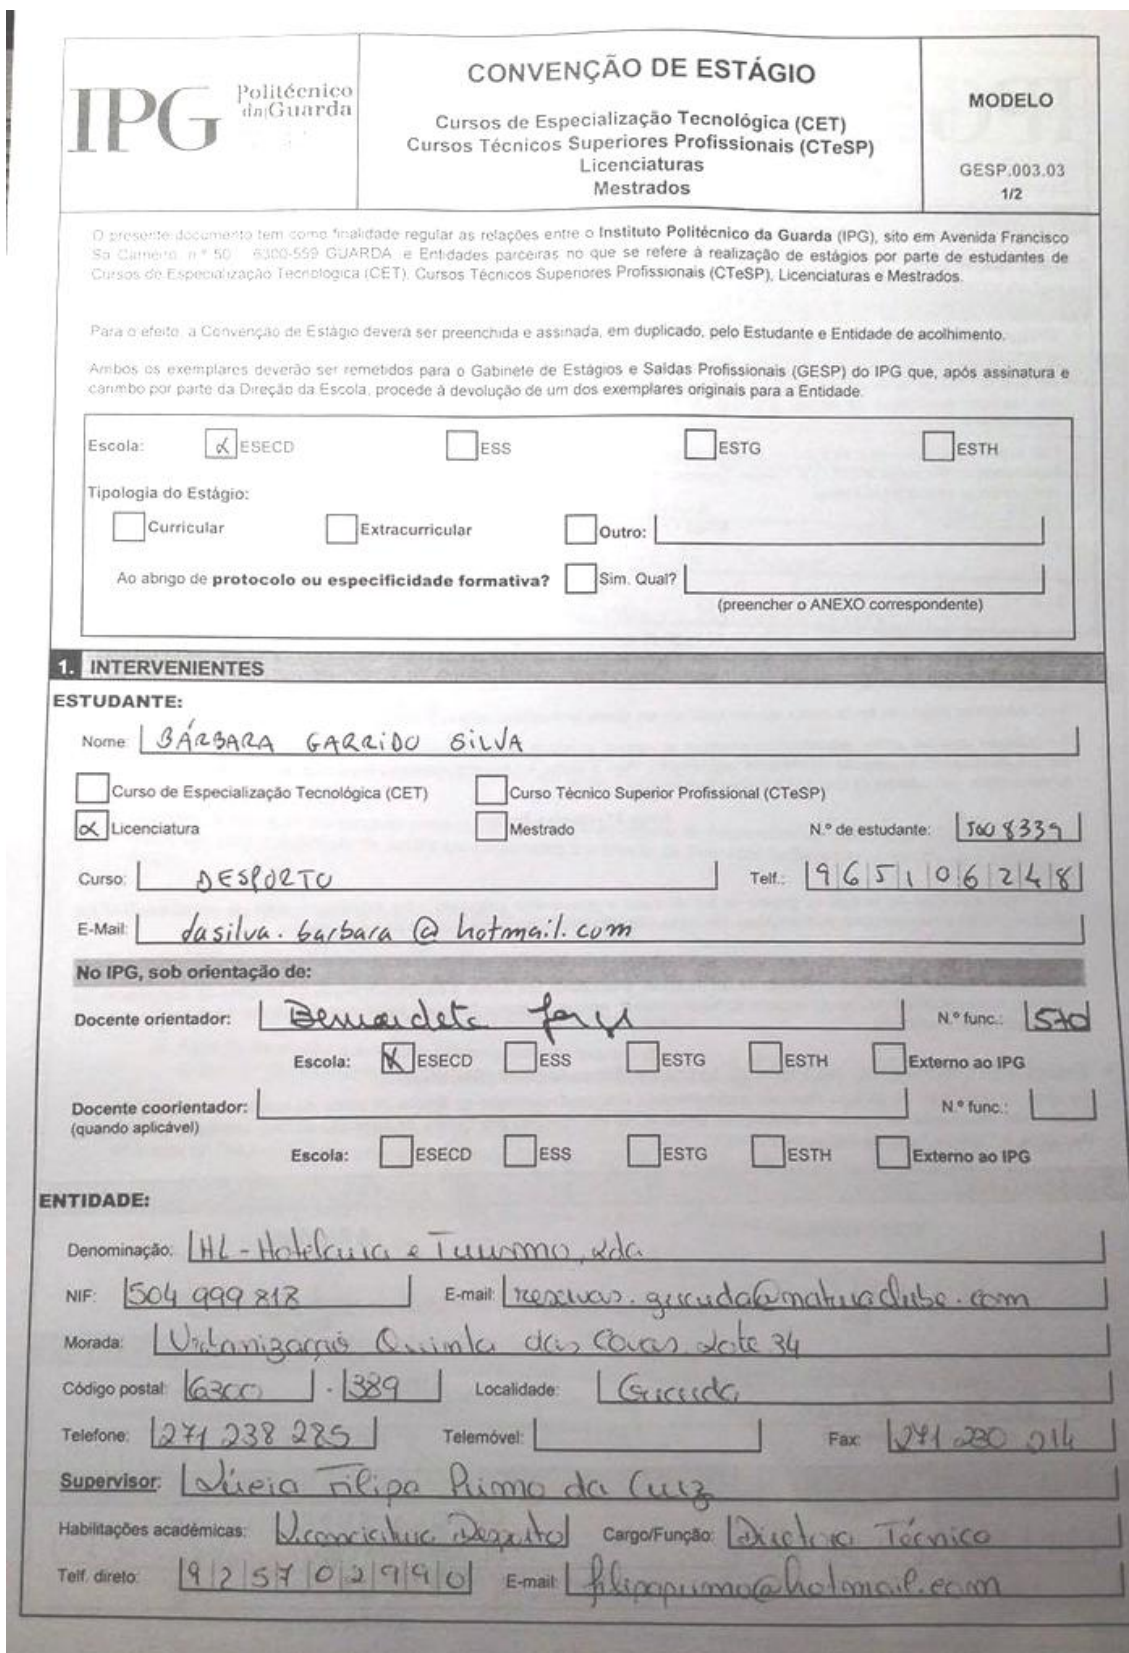 IPG Politécnico
da Guarda
CONVENÇÃO DE ESTÁGIO
Cursos de Especialização Tecnológica (CET)
Cursos Técnicos Superiores Profissionais (CTeSP)
Licenciaturas
Mestrados
MODELO
GESP.003.03
1/2
O presente documento tem como finalidade regular as relações entre o Instituto Politécnico da Guarda (IPG), sito em Avenida Francisco
Sá Carneiro, n.º 50 6300-559 GUARDA e Entidades parceiras no que se refere à realização de estágios por parte de estudantes de
Cursos de Especialização Tecnológica (CET), Cursos Técnicos Superiores Profissionais (CTeSP), Licenciaturas e Mestrados.
Para o efeito, a Convenção de Estágio deverá ser preenchida e assinada, em duplicado, pelo Estudante e Entidade de acolhimento.
Ambos os exemplares deverão ser remetidos para o Gabinete de Estágios e Saídas Profissionais (GESP) do IPG que, após assinatura e
carimbo por parte da Direção da Escola, procede à devolução de um dos exemplares originais para a Entidade.
Escola: ESECD ESS ESTG ESTH
Tipologia do Estágio:
Curricular Extracurricular Outro:
Ao abrigo de protocolo ou especificidade formativa? Sim. Qual?
(preencher o ANEXO correspondente)
1. INTERVENIENTES
ESTUDANTE:
Nome: BÁRBARA GARRIDO SILVA
Curso de Especialização Tecnológica (CET) Curso Técnico Superior Profissional (CTeSP)
Licenciatura Mestrado N.º de estudante: 5008339
Curso: DESPORTO Telf.: 965106248
E-Mail: dasilva.barbara@hotmail.com
No IPG, sob orientação de:
Docente orientador: Bernardete Jorge N.º func.: 570
Escola: ESECD ESS ESTG ESTH Externo ao IPG
Docente coorientador: N.º func.:
(quando aplicável)
Escola: ESECD ESS ESTG ESTH Externo ao IPG
ENTIDADE:
Denominação: HL - Hotelaria e Turismo, Lda
NIF: 504 999 818 E-mail: reservas.guarda@naturaclube.com
Morada: Urbanização Quinta das Covas Lote 34
Código postal: 6300 - 389 Localidade: Guarda
Telefone: 271 238 285 Telemóvel: Fax: 271 230 214
Supervisor: Lúcia Filipa Primo da Cruz
Habilitações académicas: Licenciatura Desporto Cargo/Função: Directora Técnica
Telf. direto: 925702990 E-mail: filipaprimo@hotmail.com